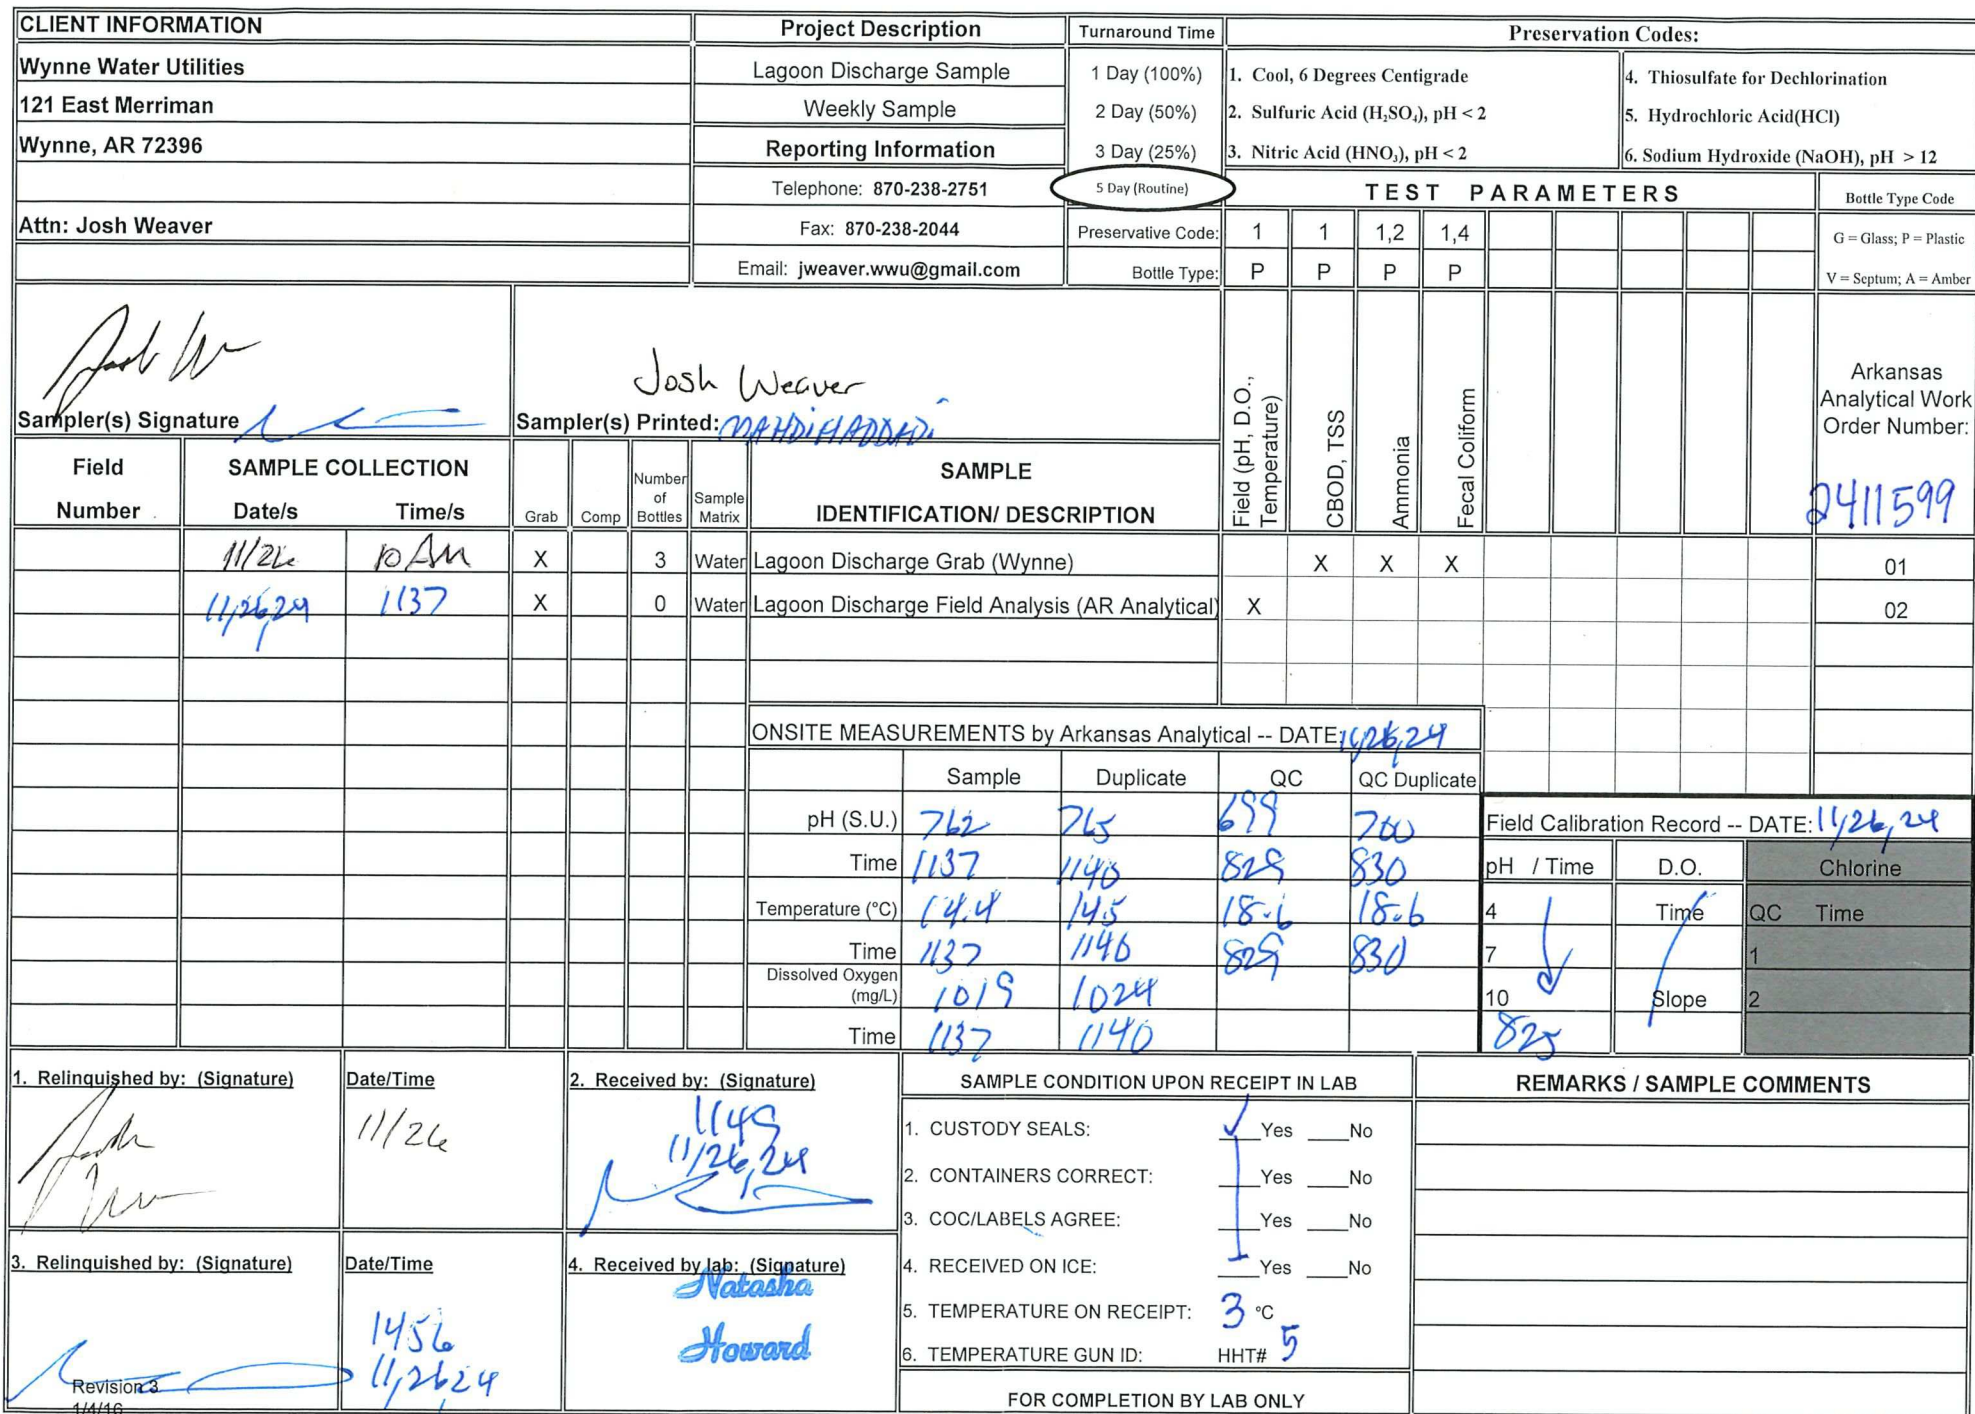 CLIENT INFORMATION
Wynne Water Utilities
121 East Merriman
Wynne, AR 72396
Attn: Josh Weaver
Project Description
Lagoon Discharge Sample
Weekly Sample
Reporting Information
Telephone: 870-238-2751
Fax: 870-238-2044
Email: jweaver.wwu@gmail.com
Turnaround Time
1 Day (100%)
2 Day (50%)
3 Day (25%)
5 Day (Routine)
Preservation Codes:
1. Cool, 6 Degrees Centigrade
2. Sulfuric Acid (H₂SO₄), pH < 2
3. Nitric Acid (HNO₃), pH < 2
4. Thiosulfate for Dechlorination
5. Hydrochloric Acid(HCl)
6. Sodium Hydroxide (NaOH), pH > 12
TEST PARAMETERS
Bottle Type Code
G = Glass; P = Plastic
V = Septum; A = Amber
Preservative Code: 1 1 1,2 1,4
Bottle Type: P P P P
Sampler(s) Signature
Josh Weaver
Sampler(s) Printed: MAHDI HADDADI
Field (pH, D.O., Temperature)
CBOD, TSS
Ammonia
Fecal Coliform
Arkansas
Analytical Work
Order Number:
2411599
Field
Number
SAMPLE COLLECTION
Date/s Time/s
Grab
Comp
Number
of
Bottles
Sample
Matrix
SAMPLE
IDENTIFICATION/ DESCRIPTION
11/26 10 AM X 3 Water Lagoon Discharge Grab (Wynne) X X X 01
11,26,24 1137 X 0 Water Lagoon Discharge Field Analysis (AR Analytical) X 02
ONSITE MEASUREMENTS by Arkansas Analytical -- DATE: 11,26,24
Sample Duplicate QC QC Duplicate
pH (S.U.) 762 765 699 700
Time 1137 1140 829 830
Temperature (°C) 14.4 14.5 18.6 18.6
Time 1137 1140 829 830
Dissolved Oxygen
(mg/L) 1019 1024
Time 1137 1140
Field Calibration Record -- DATE: 11,26,24
pH / Time D.O. Chlorine
4 Time QC Time
7 1
10 Slope 2
825
1. Relinquished by: (Signature)
Date/Time
11/26
2. Received by: (Signature)
1149
11/26,24
3. Relinquished by: (Signature)
Revision 3
1/4/16
Date/Time
1456
11,26,24
4. Received by lab: (Signature)
Natasha
Howard
SAMPLE CONDITION UPON RECEIPT IN LAB
1. CUSTODY SEALS: ✓ Yes ___No
2. CONTAINERS CORRECT: ___Yes ___No
3. COC/LABELS AGREE: ___Yes ___No
4. RECEIVED ON ICE: ___Yes ___No
5. TEMPERATURE ON RECEIPT: 3 °C
6. TEMPERATURE GUN ID: HHT# 5
FOR COMPLETION BY LAB ONLY
REMARKS / SAMPLE COMMENTS